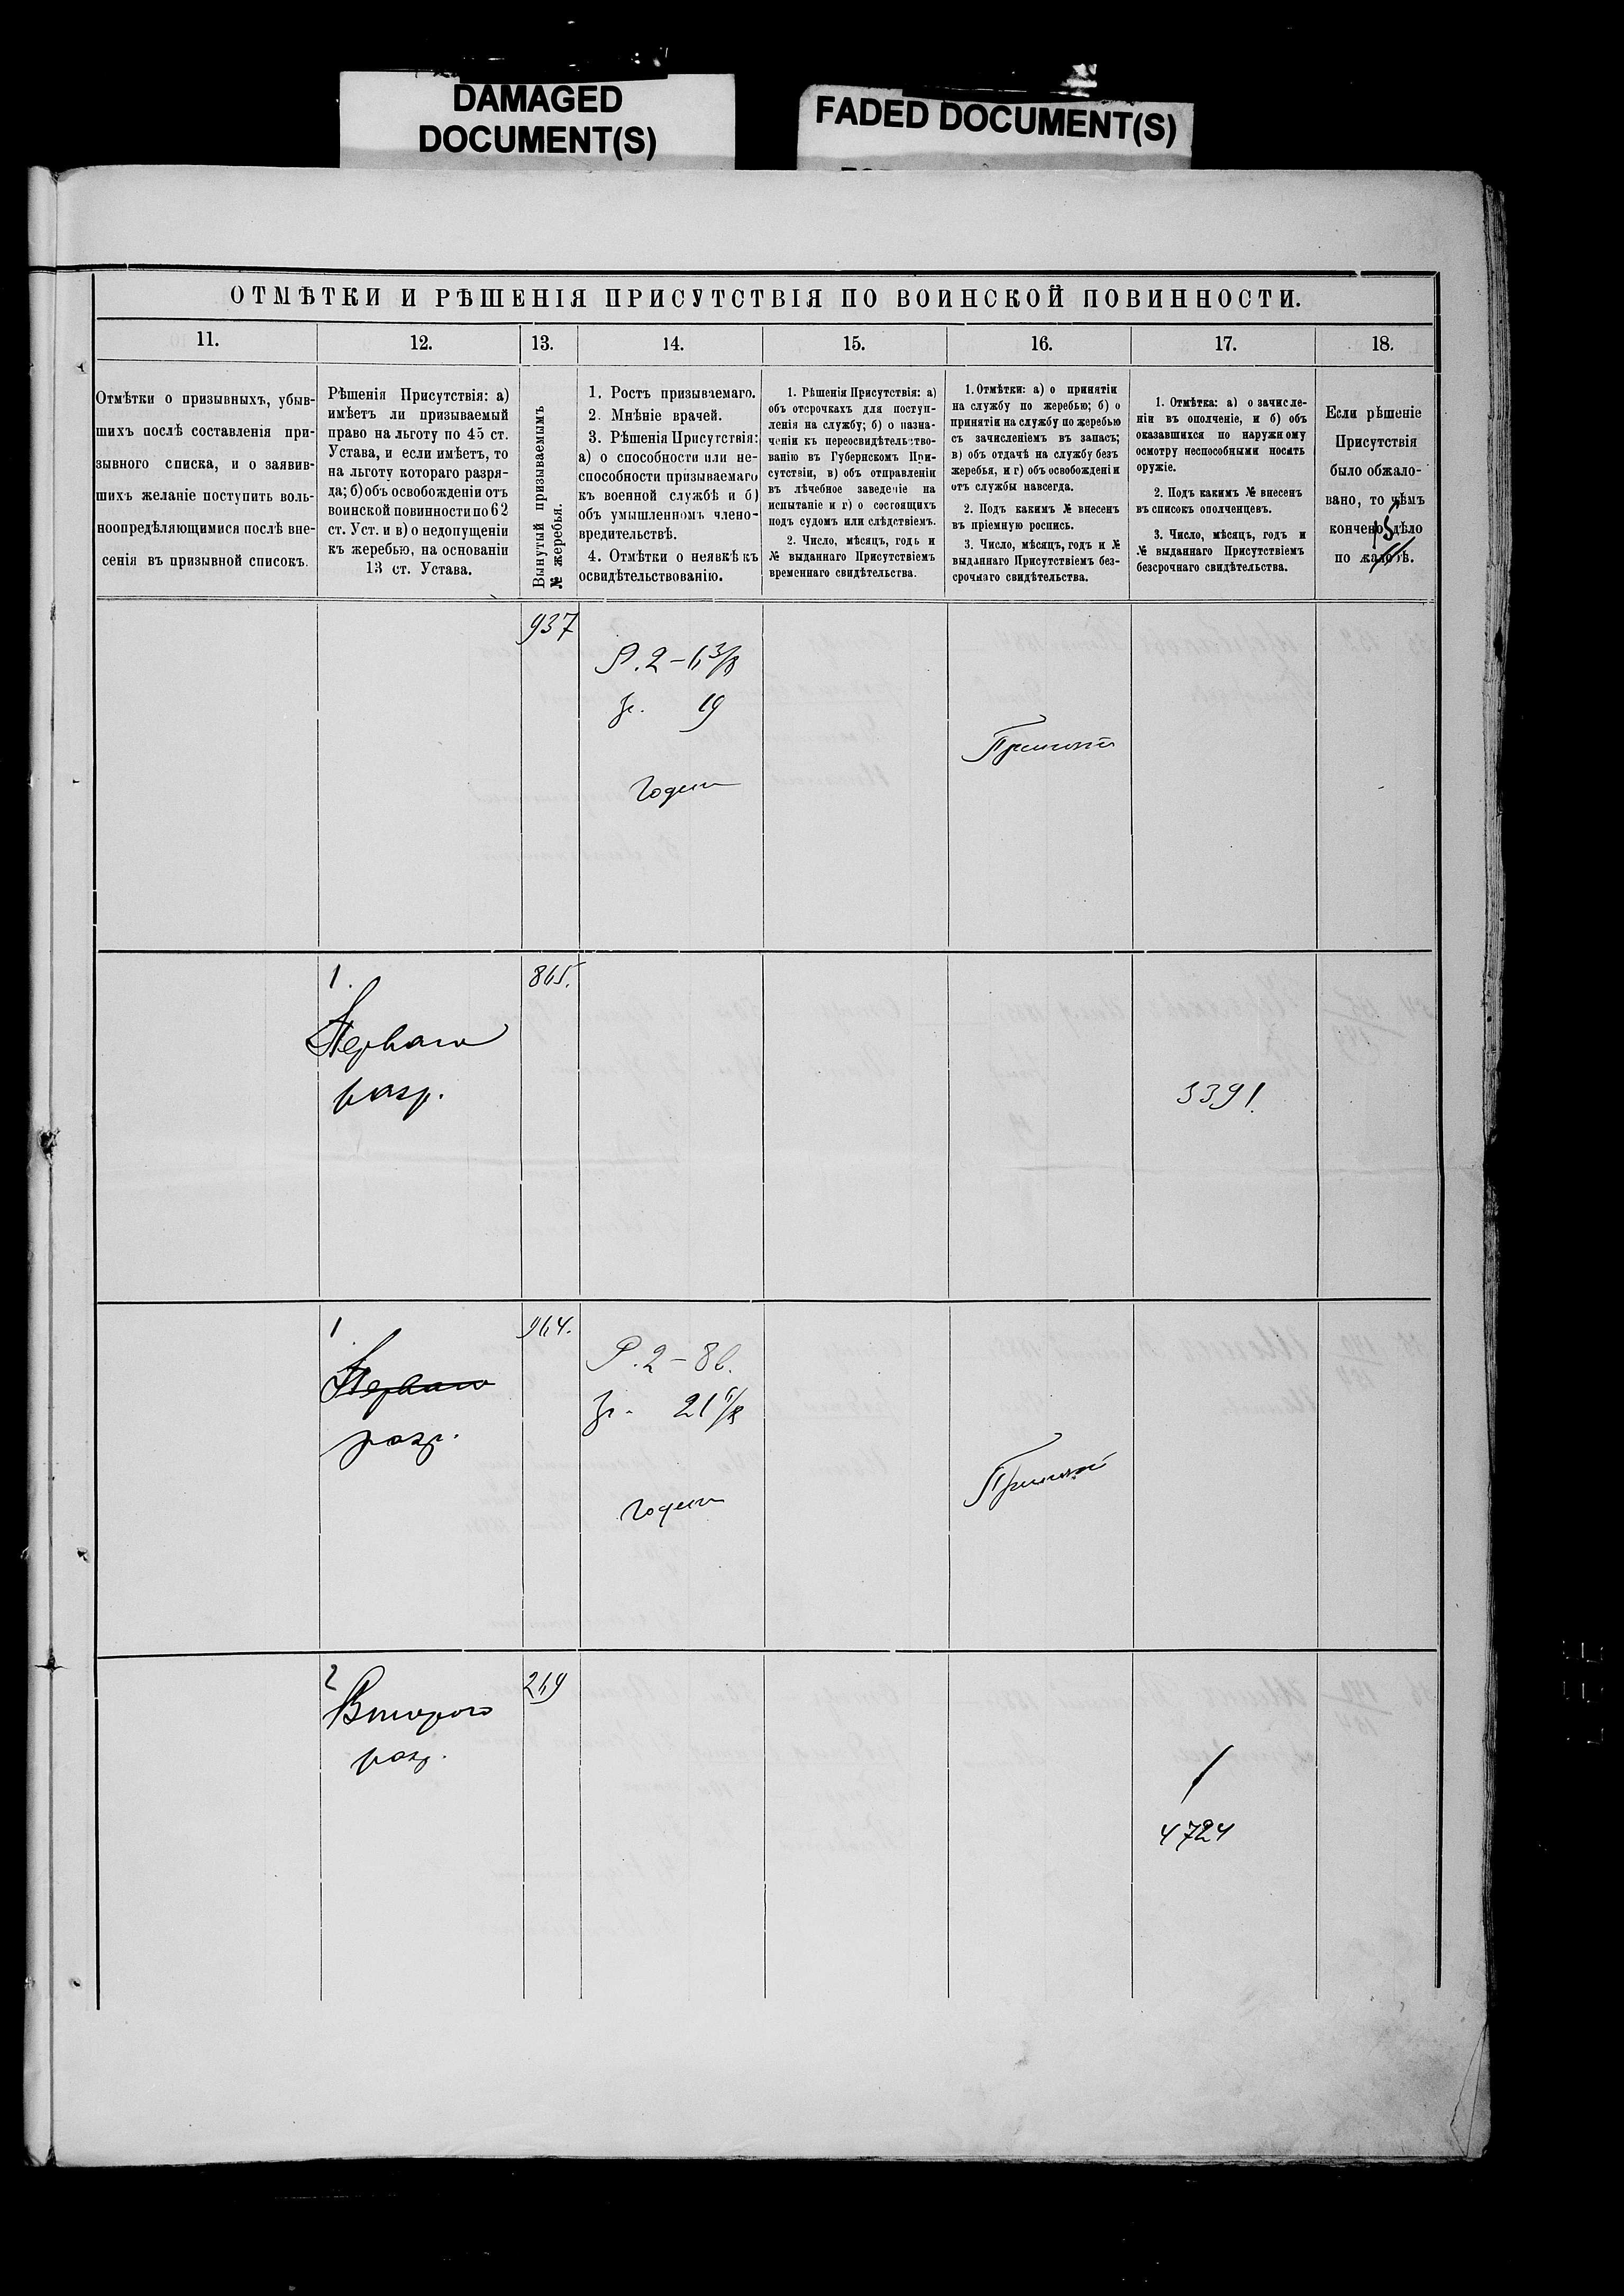 DAMAGED
DOCUMENT(S)
FADED DOCUMENT(S)
ОТМѢТКИ И РѢШЕНІЯ ПРИСУТСТВІЯ ПО ВОИНСКОЙ ПОВИННОСТИ.
11.
12.
13.
14.
15.
16.
17.
18.
Отмѣтки о призывныхъ, убыв-
шихъ послѣ составленія при-
зывного списка, и о заявив-
шихъ желаніе поступить воль-
ноопредѣляющимися послѣ вне-
сенія въ призывной списокъ.
Рѣшенія Присутствія: а)
имѣетъ ли призываемый
право на льготу по 45 ст.
Устава, и если имѣетъ, то
на льготу котораго разря-
да; б) объ освобожденіи отъ
воинской повинности по 62
ст. Уст. и в) о недопущеніи
къ жеребью, на основаніи
13 ст. Устава.
Вынутый призываемымъ
№ жеребья.
1. Ростъ призываемаго.
2. Мнѣніе врачей.
3. Рѣшенія Присутствія:
а) о способности или не-
способности призываемаго
къ военной службѣ и б)
объ умышленномъ члено-
вредительствѣ.
4. Отмѣтки о неявкѣ къ
освидѣтельствованію.
1. Рѣшенія Присутствія: а)
объ отсрочкахъ для поступ-
ленія на службу; б) о назна-
ченіи къ переосвидѣтельство-
ванію въ Губернскомъ При-
сутствіи, в) объ отправленіи
въ лѣчебное заведеніе на
испытаніе и г) о состоящихъ
подъ судомъ или слѣдствіемъ.
2. Число, мѣсяцъ, годъ и
№ выданнаго Присутствіемъ
временнаго свидѣтельства.
1. Отмѣтки: а) о принятіи
на службу по жеребью; б) о
принятіи на службу по жеребью
съ зачисленіемъ въ запасъ;
в) объ отдачѣ на службу безъ
жеребья, и г) объ освобожденіи
отъ службы навсегда.
2. Подъ какимъ № внесенъ
въ пріемную роспись.
3. Число, мѣсяцъ, годъ и №
выданнаго Присутствіемъ без-
срочнаго свидѣтельства.
1. Отмѣтка: а) о зачисле-
ніи въ ополченіе, и б) объ
оказавшихся по наружному
осмотру неспособными носить
оружіе.
2. Подъ какимъ № внесенъ
въ список ополченцевъ.
3. Число, мѣсяцъ, годъ и
№ выданнаго Присутствіемъ
безсрочнаго свидѣтельства.
Если рѣшеніе
Присутствія
было обжало-
вано, то чѣмъ
кончено дѣло
по жалобѣ.
937
Р. 2 – 6 3/8
19
Годенъ
Принятъ
1.
865.
Перваго
разр.
3391.
1
964.
Перваго
разр.
Р. 2 – 8 в.
Годенъ
Принятъ
2
269
Второго
разр.
4724